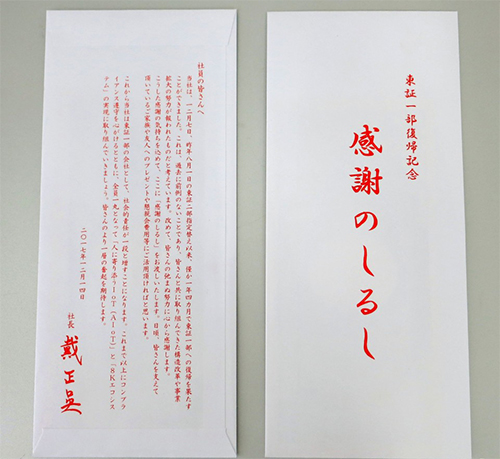 東証一部復帰記念
感謝のしるし
社員の皆さんへ
当社は、一二月七日、昨年八月一日の東証二部指定替え以来、僅か一年四カ月で東証一部への復帰を果たす
ことができました。これは、過去に前例のないことであり、皆さんと共に取り組んできた構造改革や事業
拡大の努力が報われたものだと考えています。改めて、皆さんの弛まぬ努力に心から感謝します。
こうした感謝の気持ちを込めて、ここに「感謝のしるし」をお渡しいたします。日頃、皆さんを支えて
頂いているご家族や友人へのプレゼントや懇親会費用等にご活用頂ければと思います。
これから当社は東証一部の会社として、社会的責任が一段と増すことになります。これまで以上にコンプラ
イアンス遵守を心がけるとともに、全員一丸となって「人に寄り添うIoT(AIoT)」と「8Kエコシス
テム」の実現に取り組んでいきましょう。皆さんのより一層の奮起を期待します。
二〇一七年一二月一四日
社長 戴正呉